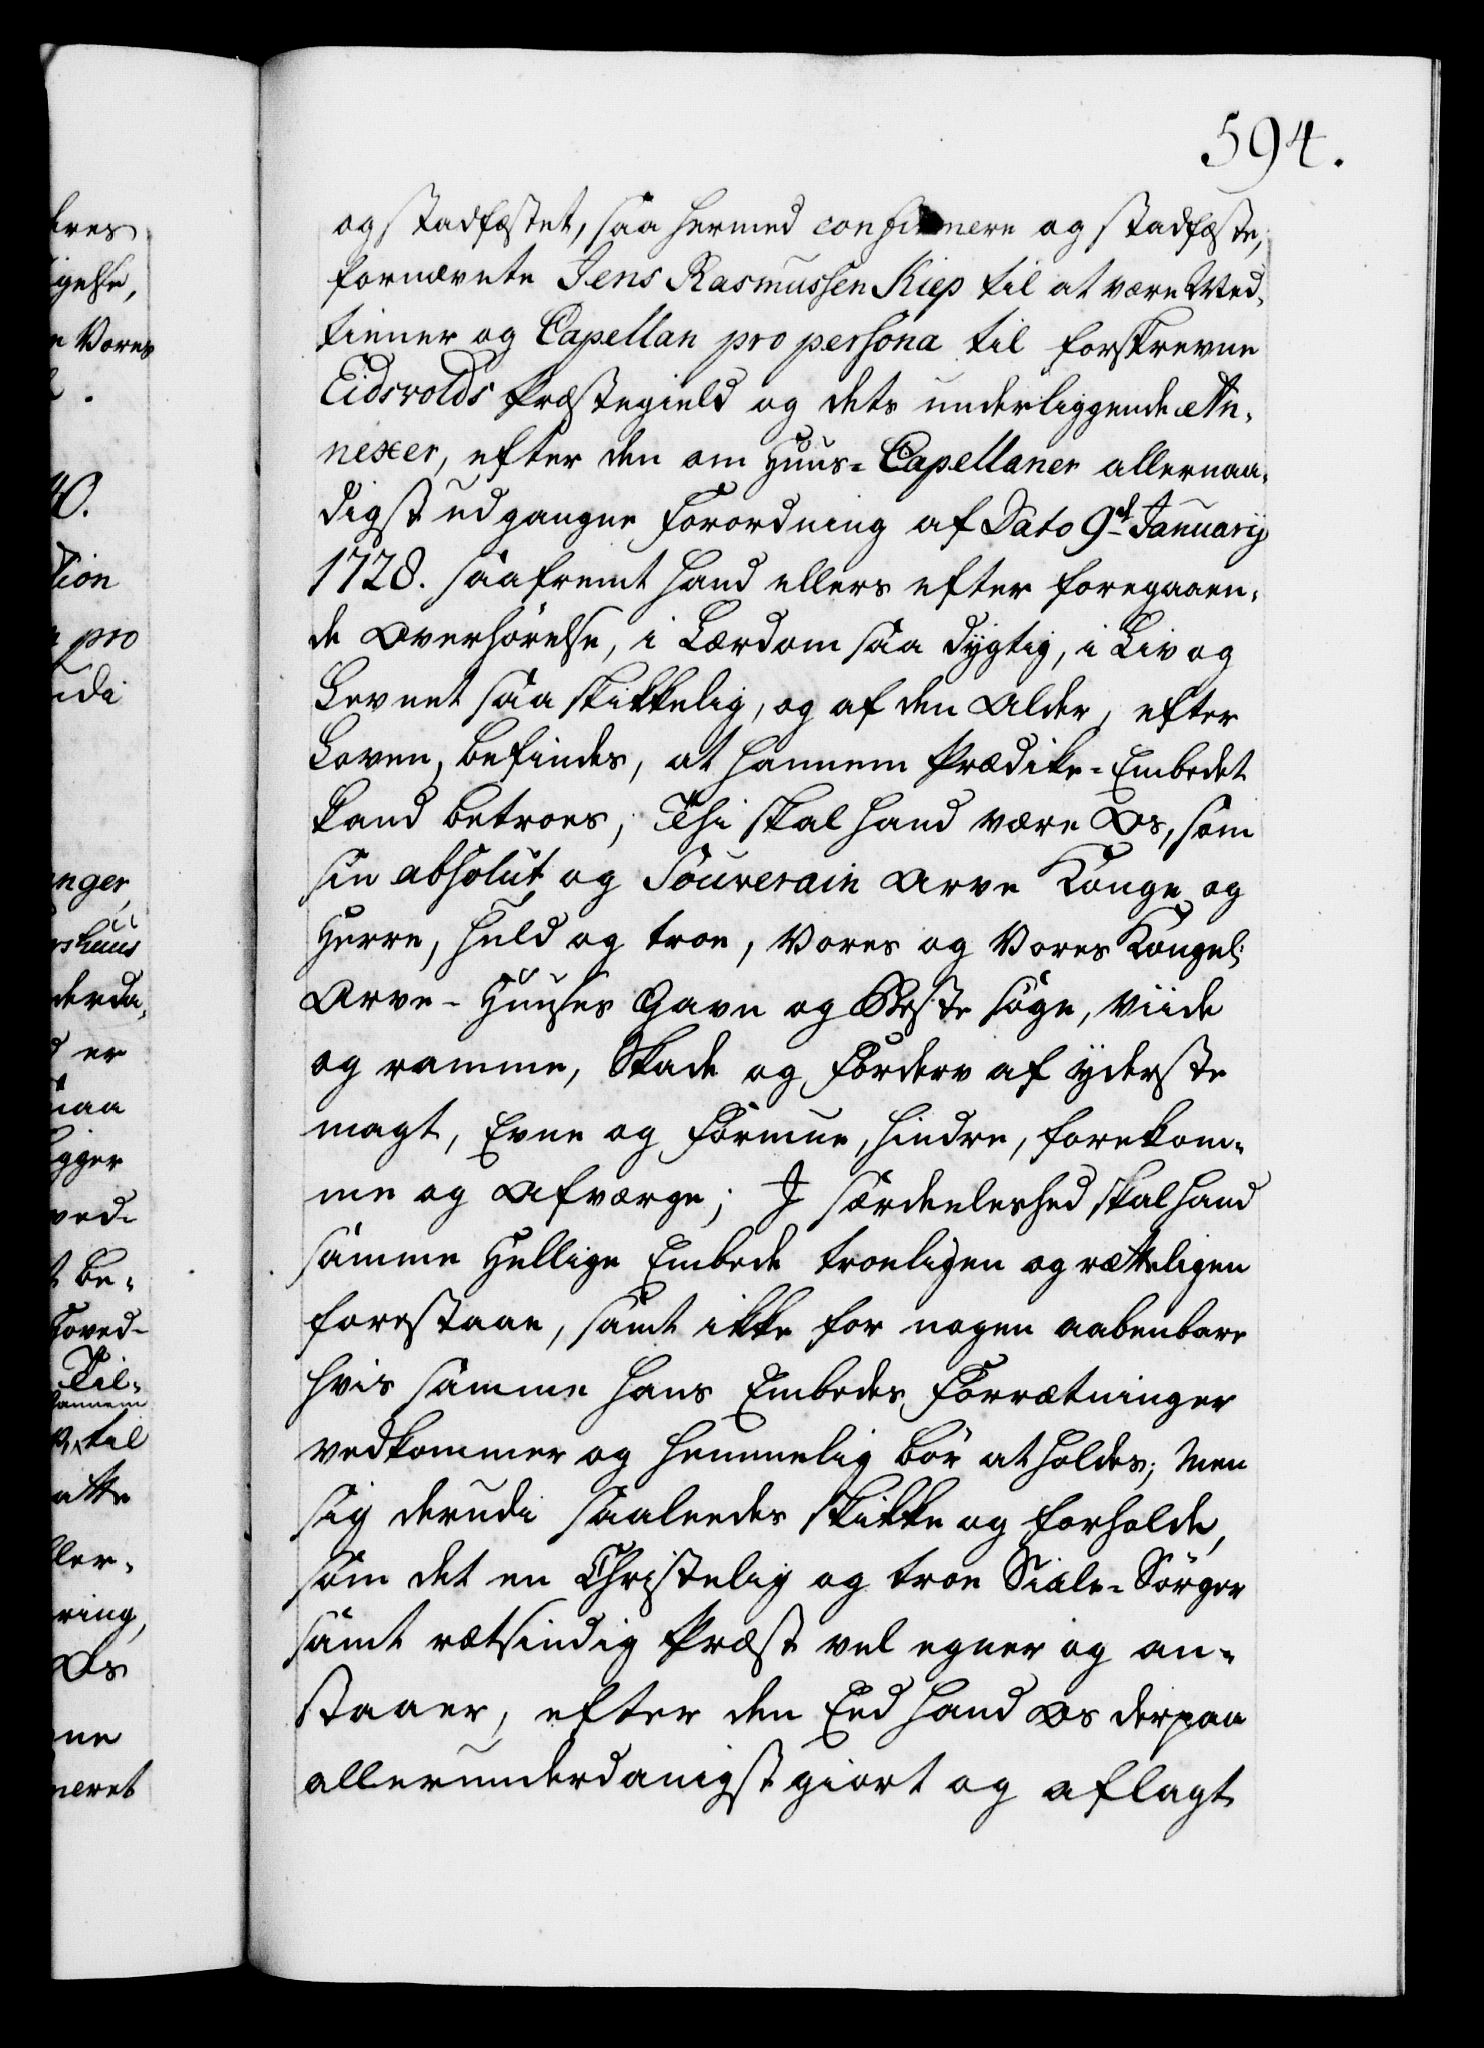 594.
og stadfæstet, saa hermed confirmere og stadfæste,
fornævnte Jens Rasmussen Kiep til at være Med-
tiener og Capellan pro persona til forskrevne
Eidsvolds Præstegield og dets underliggende An-
nexer, efter den om Huus-Capellaner allernaa-
digst udgangne Forordning af Dato 9de Januarij
1728. saafremt hand ellers efter foregaaen-
de Overhørelse, i Lærdom saa dygtig, i Liv og
Levnet saa skikkelig, og af den Alder, efter
Loven, befindes, at hannem Prædike-Embedet
kand betroes; Thi skal hand være Os, som
sin absolut og Souverain Arve Konge og
Herre, huld og troe, Vores og Vores Kongel:
Arve-Huuses Gavn og Beste søge, viide
og ramme, Skade og Forderv af yderste
magt, Evne og Formue, hindre, forekom-
me og Afværge; I særdeeleshed skal hand
samme Hellige Embede troeligen og rætteligen
forestaae, samt ikke for nogen aabenbare
hvis samme hans Embedes Forrætninger
vedkommer og hemmelig bør at holdes; Men
sig derudi saaleedes skikke og forholde,
som det en Christelig og troe Siæle-Sørger
samt rætsindig Præst vel egner og an-
staaer, efter den Eed hand Os derpaa
allerunderdanigst giort og aflagt